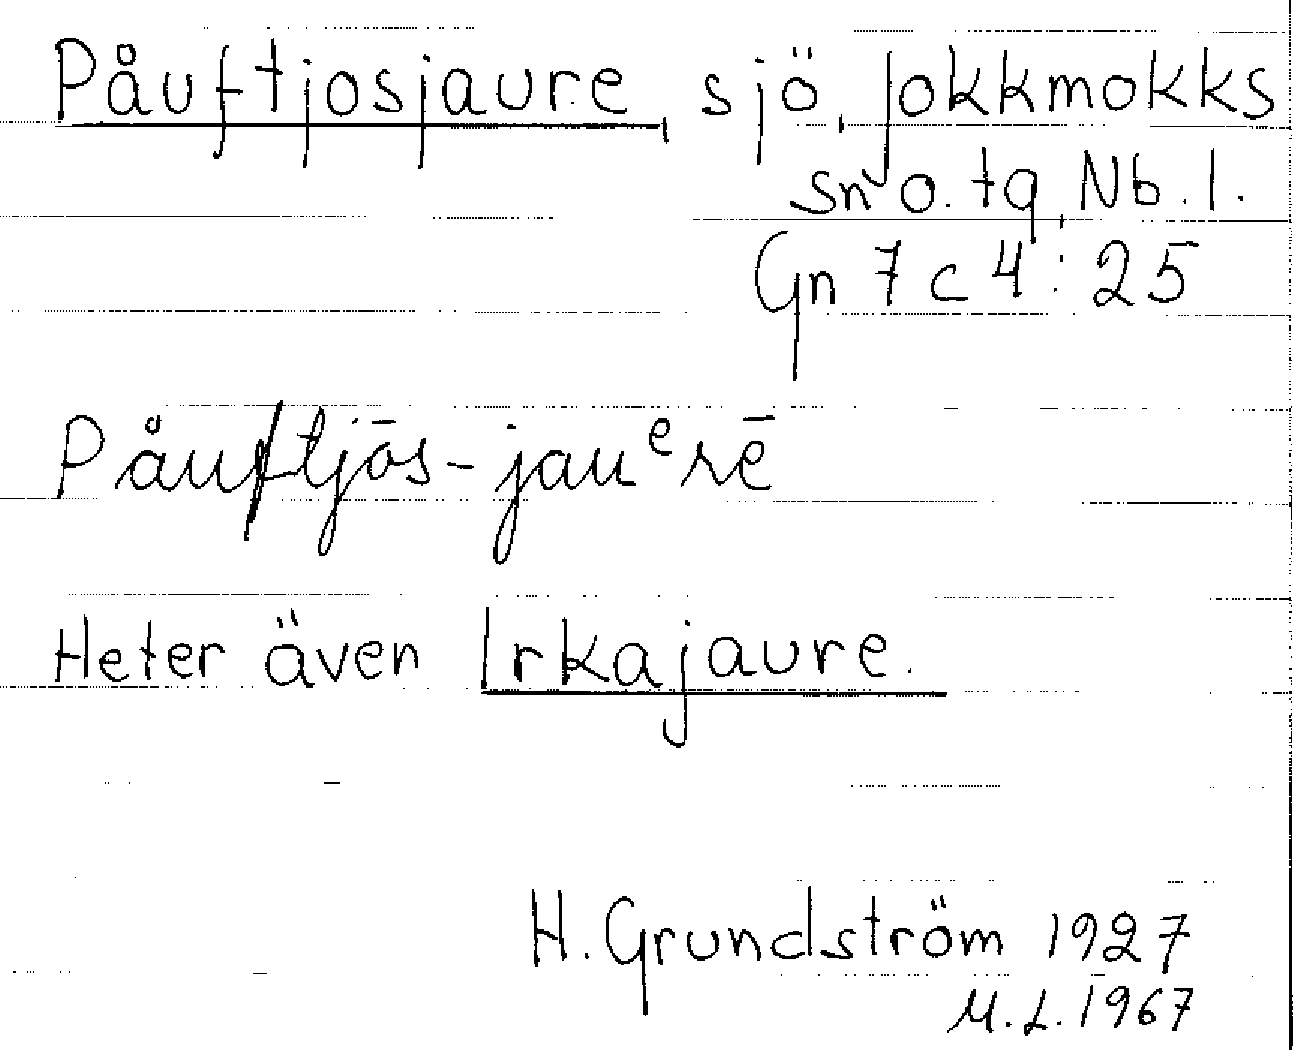 Påuftjosjaure, sjö, Jokkmokks
sn o. tg, Nb. l.
Gn 7 c 4 : 25
Påuftjōs-jauᵉrē
Heter även Irkajaure.
H. Grundström 1927
M.L. 1967